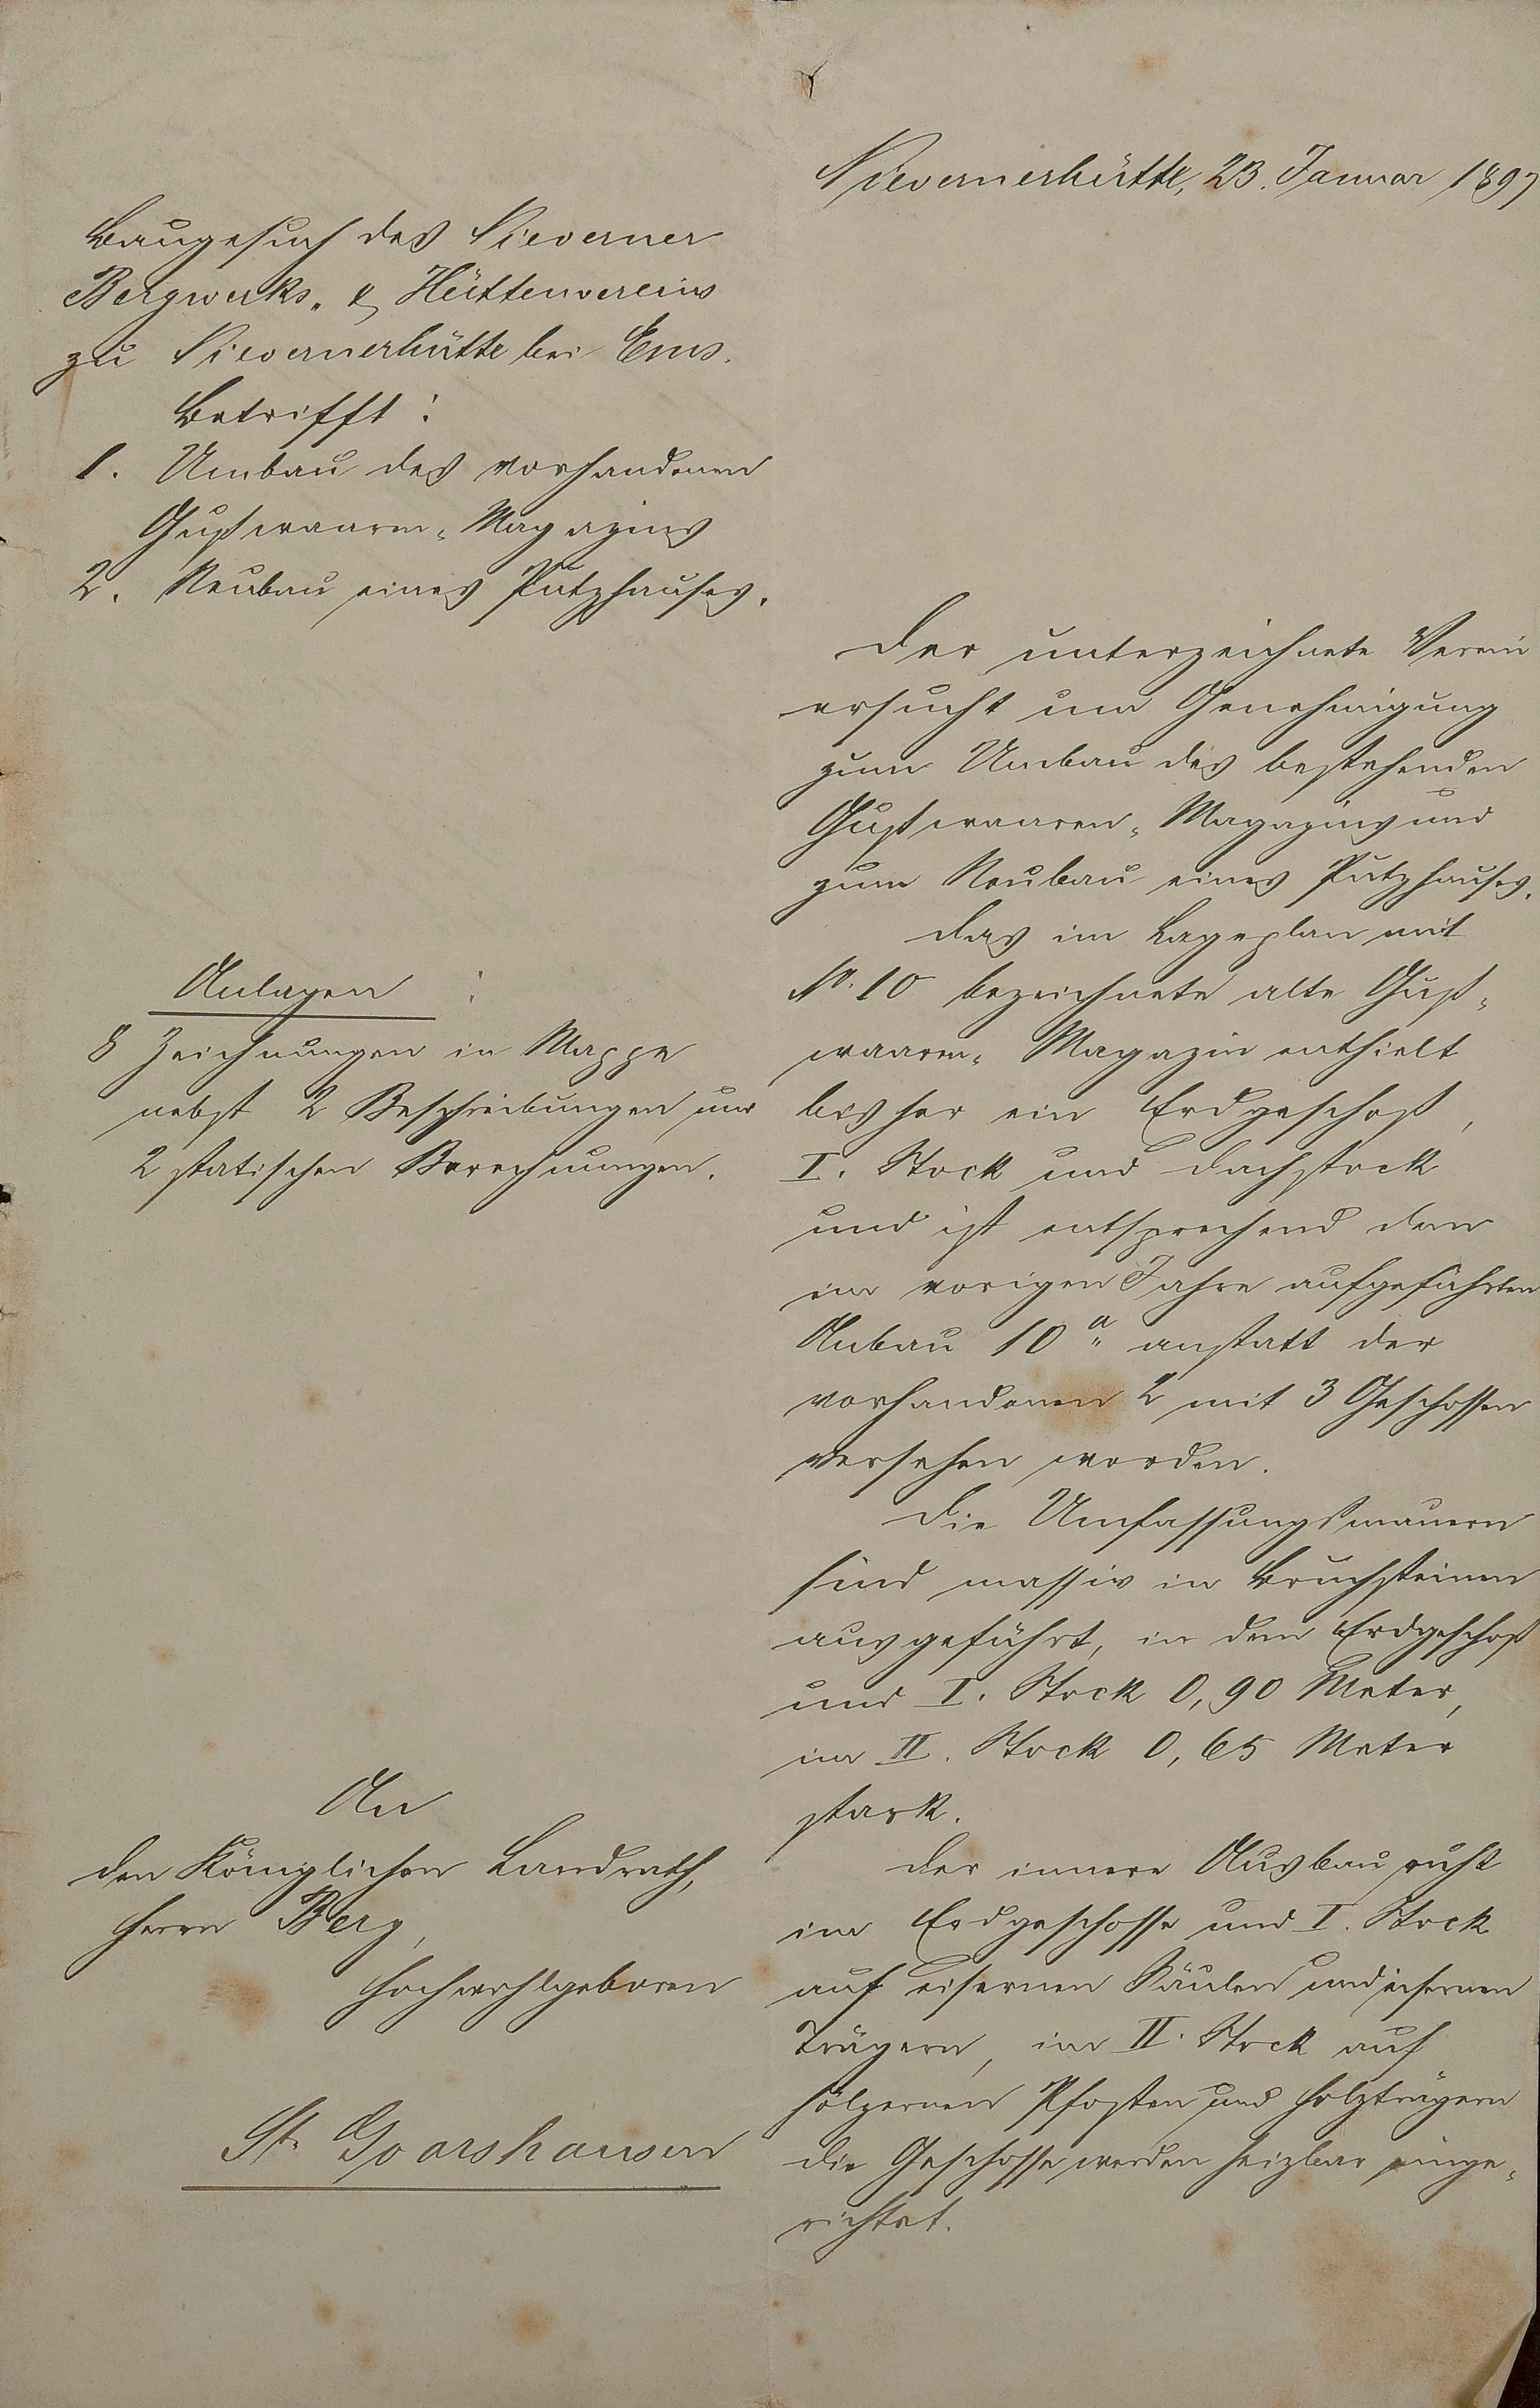 Nievernerhütte, 23. Januar 1897
Baugesuch des Nieverner
Bergwerks- & Hüttenvereins
zu Nievernerhütte bei Ems.
Betrifft:
1. Umbau des vorhandenen
Gußwaaren-Magazins
2. Neubau eines Putzhauses.
Der unterzeichnete Verein
ersucht um Genehmigung
zum Umbau des bestehenden
Gußwaaren-Magazins und
zum Neubau eines Putzhauses.
Das im Lageplan mit
No. 10 bezeichnete alte Guß-
waaren-Magazin enthielt
bisher ein Erdgeschoß,
I. Stock und Dachstock
und ist entsprechend dem
im vorigen Jahre aufgeführten
Anbau 10a anstatt der
vorhandenen 2 mit 3 Geschossen
versehen worden.
Die Umfassungsmauern
sind massiv in Bruchsteinen
ausgeführt, in dem Erdgeschoß
und I. Stock 0,90 Meter,
im II. Stock 0,65 Meter
stark.
Der innere Ausbau ruht
im Erdgeschosse und I. Stock
auf eisernen Säulen und eisernen
Trägern, im II. Stock auf
hölzernen Pfosten und Holzträgern
die Geschosse werden heizbar einge-
richtet.
Anlagen:
8 Zeichnungen in Mappe
nebst 2 Beschreibungen und
2 statischen Berechnungen.
An
den Königlichen Landrath,
Herrn Berg,
Hochwohlgeboren
St. Goarshausen